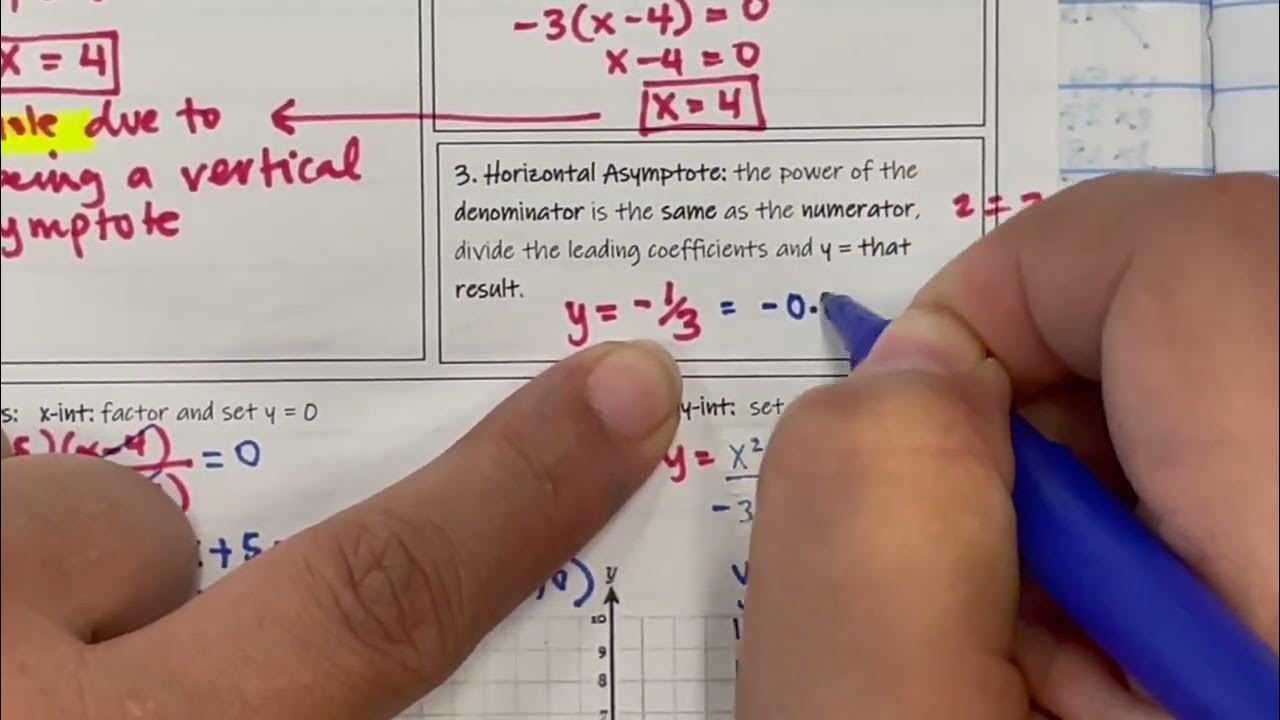 -3(x-4) = 0
x = 4
x-4 = 0
x = 4
due to
being a vertical
asymptote
3. Horizontal Asymptote: the power of the
denominator is the same as the numerator,
divide the leading coefficients and y = that
result.
2 =
y = -1/3 = -0.
x-int: factor and set y = 0
y-int: set
(x-4)
= 0
y = x²
-3
+5
,0)
y
10
9
8
7